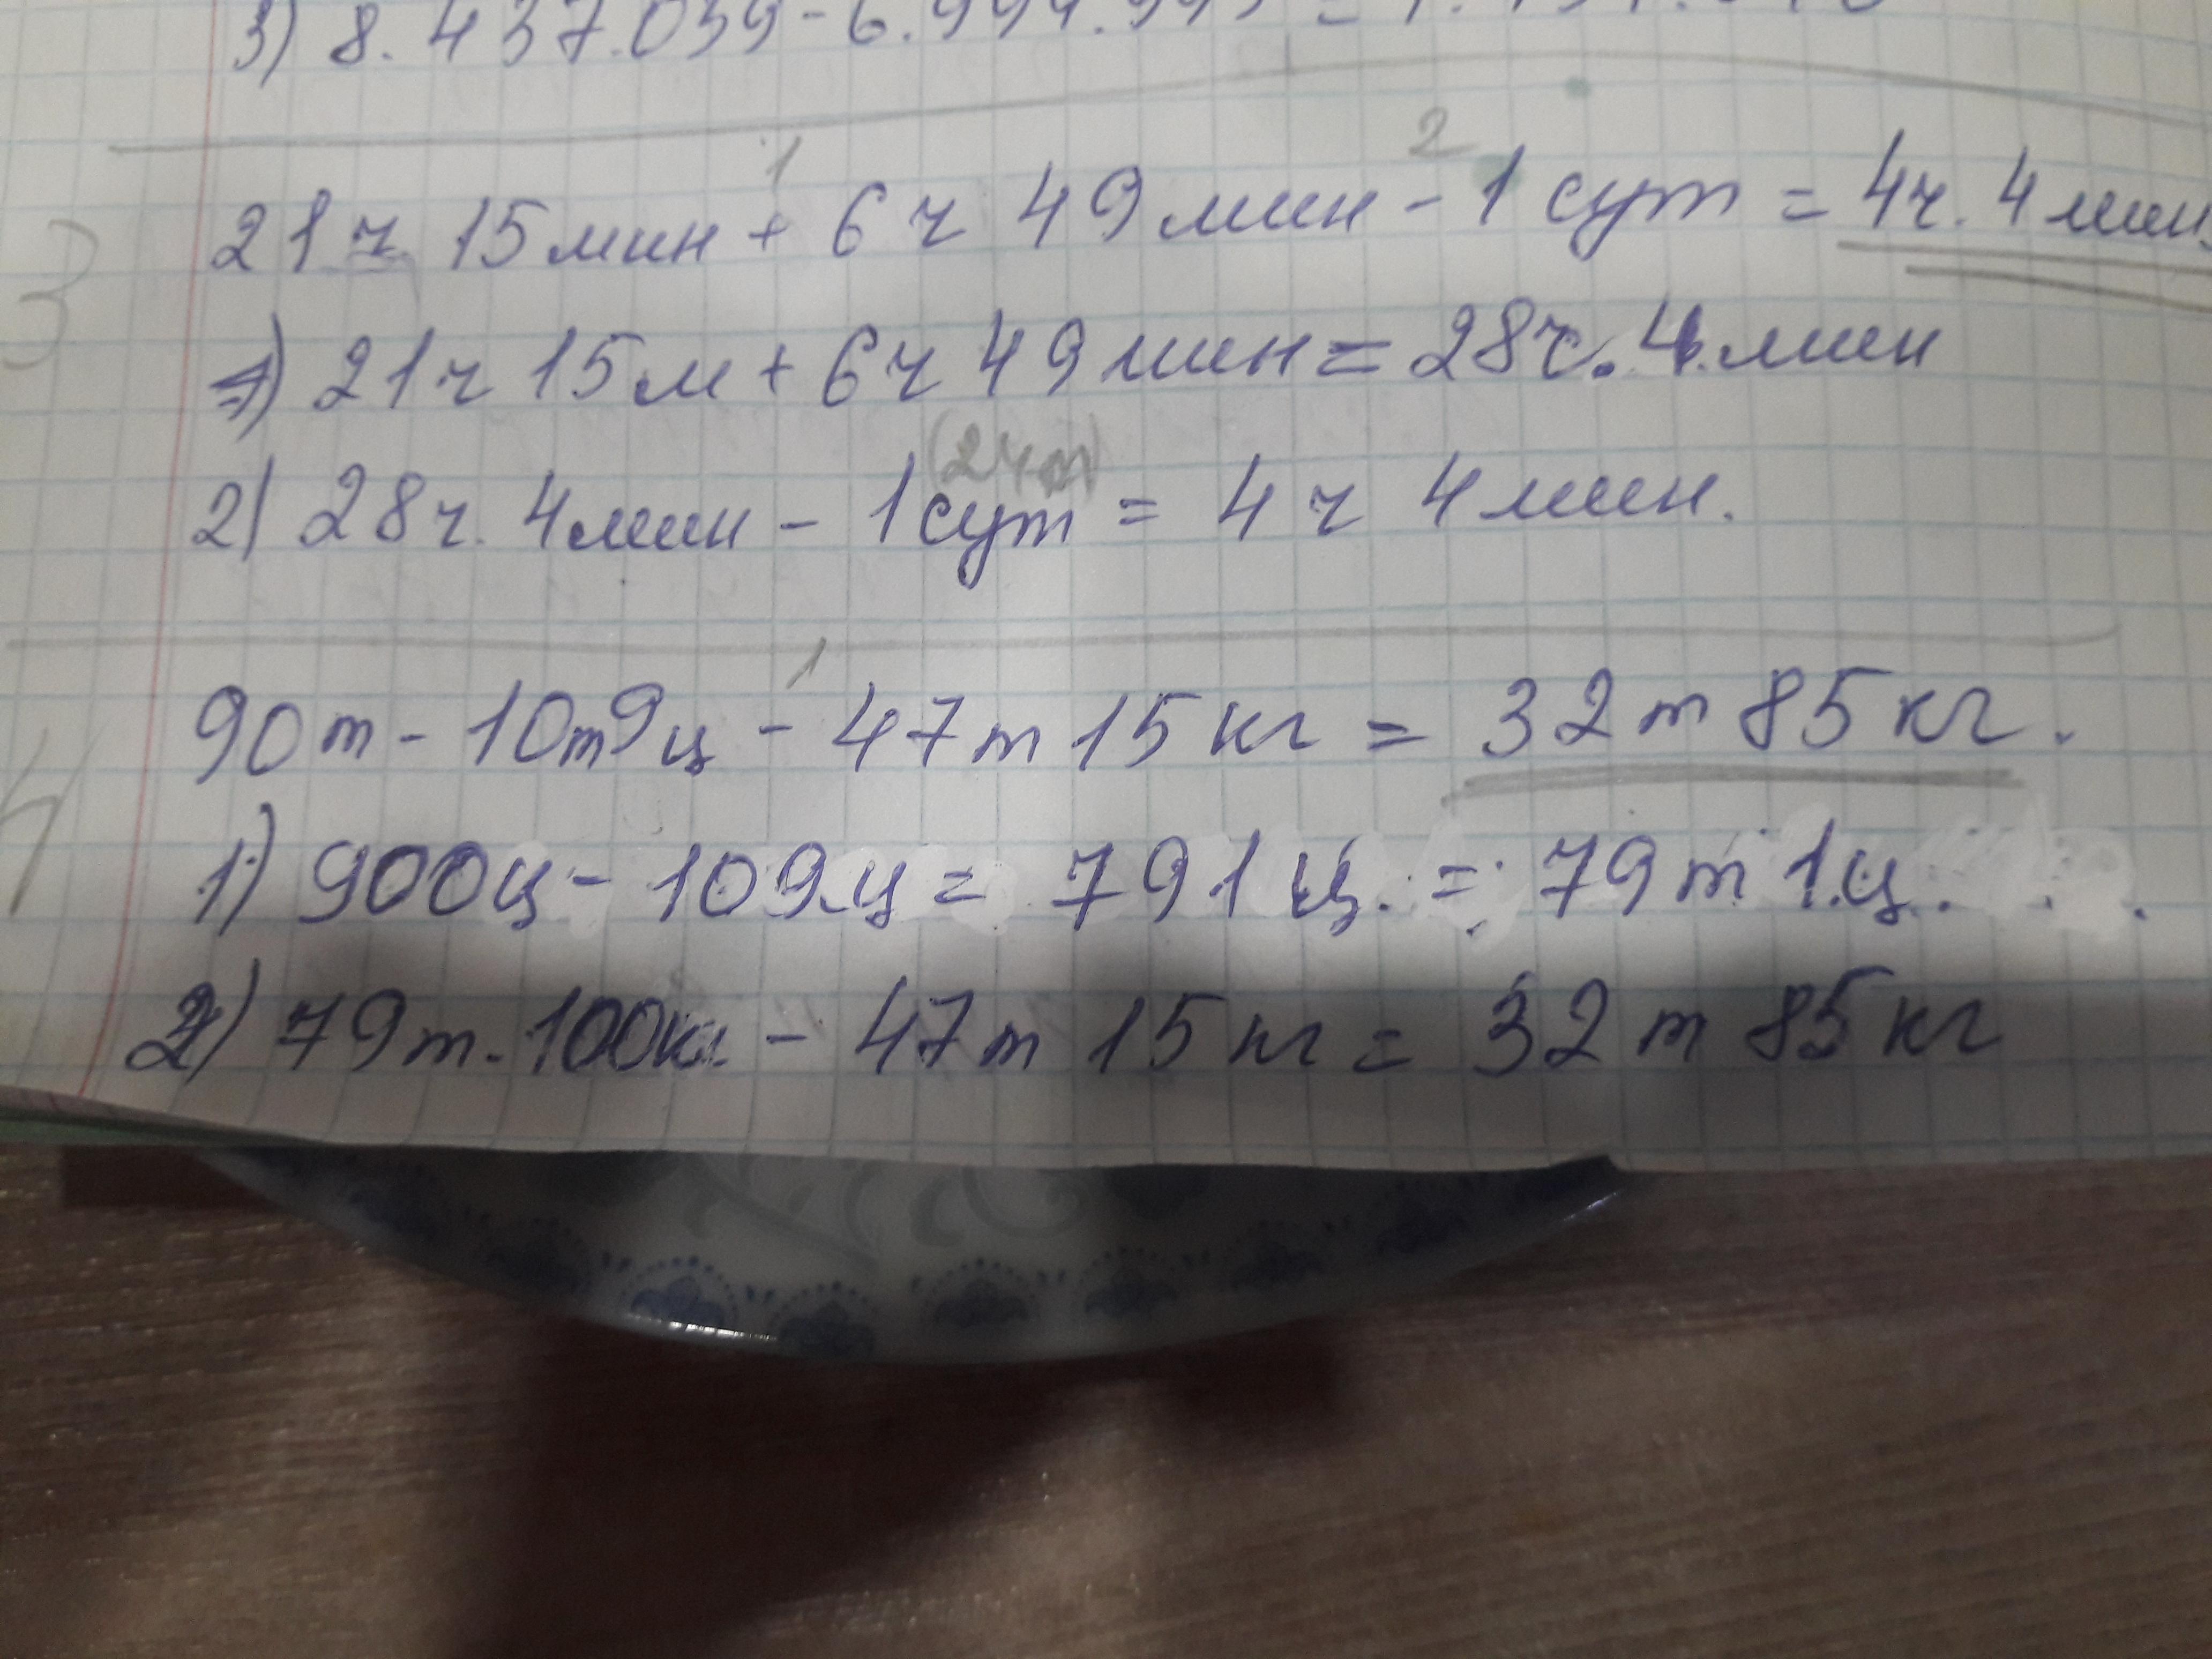 3) 8.437.039 - 6.994.993 =
1 2
3 21 ч 15 мин + 6 ч 49 мин - 1 сут = 4ч. 4 мин.
1) 21 ч 15 м + 6 ч 49 мин = 28ч. 4 мин
(24ч)
2) 28 ч. 4 мин - 1 сут = 4 ч 4 мин.
1
4 90 т - 10 т 9 ц - 47 т 15 кг = 32 т 85 кг.
1) 900 ц - 109 ц = 791 ц. = 79 т 1 ц.
2) 79 т. 100 кг - 47 т 15 кг = 32 т 85 кг